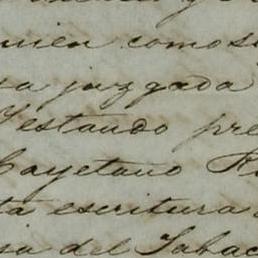 uien como s
sa juzgada
Y estando pre
Cayetano R
ta escritura
sa del Tabac